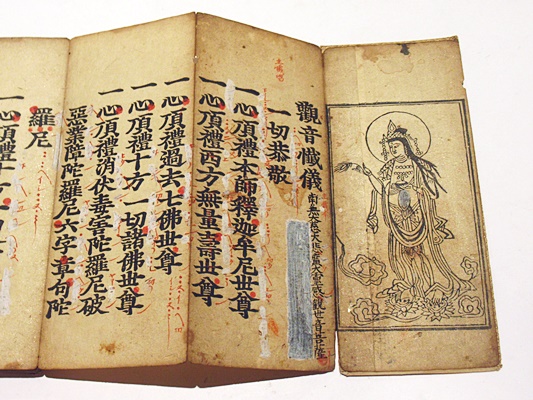 觀音懺儀
南無 觀世音菩薩
一切恭敬
一心頂禮本師釋迦牟尼世尊
一心頂禮西方無量壽世尊
一心頂禮過去七佛世尊
一心頂禮十方一切諸佛世尊
一心頂禮消伏毒害陀羅尼破
惡業障陀羅尼六字章句陀
羅尼
一心頂禮十